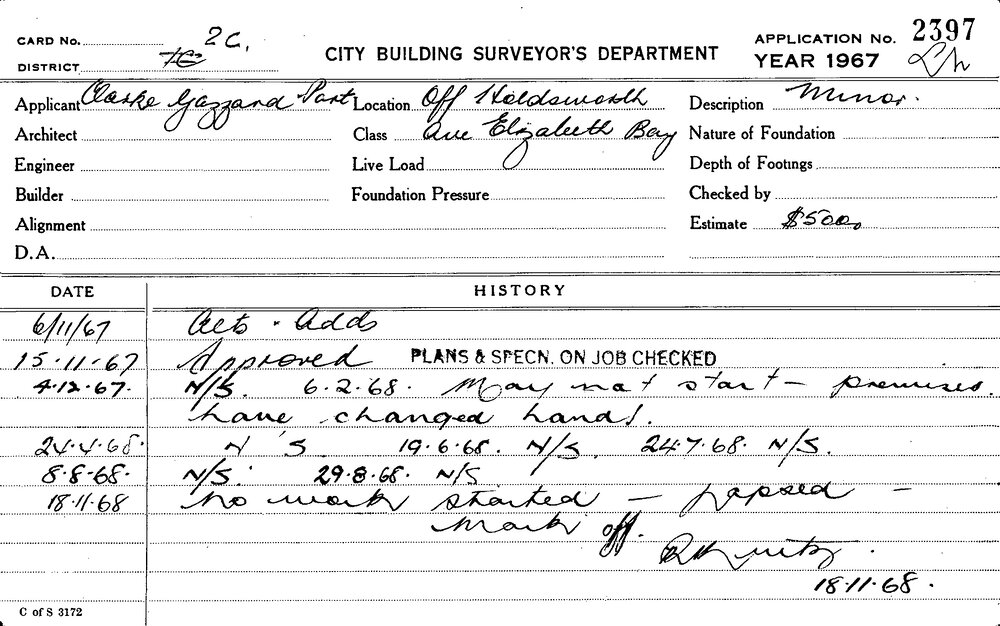 CARD No. 2C. CITY BUILDING SURVEYOR'S DEPARTMENT APPLICATION No. 2397
DISTRICT YEAR 1967
Applicant Clarke Gazzard Part Location Off Holdsworth Description Minor.
Architect Class Ave Elizabeth Bay Nature of Foundation
Engineer Live Load Depth of Footings
Builder Foundation Pressure Checked by
Alignment Estimate $500
D.A.
DATE HISTORY
6/11/67 Alts. Adds
15.11.67 Approved PLANS & SPECN. ON JOB CHECKED
4.12.67. N/S. 6.2.68. May not start - premises
have changed hands.
24.4.68. N S 19.6.68. N/S. 24.7.68. N/S.
8.8.68. N/S. 29.8.68. N/S
18.11.68 No work started - lapsed -
Mark off.
18.11.68.
C of S 3172